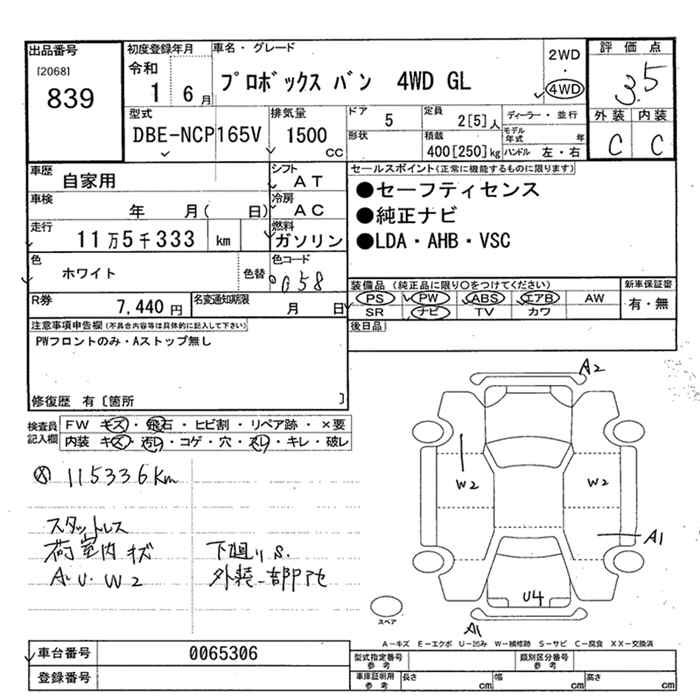 出品番号
[2068]
839
初度登録年月
令和
1 6月
車名・グレード
プロボックス バン 4WD GL
2WD
・
4WD
評価点
3.5
外装 内装
C C
型式
DBE-NCP165V
排気量
1500
CC
ドア
5
形状
定員
2[5]人
積載
400[250]kg
ディーラー・並行
モデル年式 年
ハンドル 左・右
車歴
自家用
シフト
AT
車検
年 月( 日)
冷房
AC
走行
11万5千333 km
燃料
ガソリン
色
ホワイト
色替
色コード
058
R券
7,440円
名変通知期限
月 日
セールスポイント(正常に機能するものに限ります)
●セーフティセンス
●純正ナビ
●LDA・AHB・VSC
装備品 (純正品に限り○をつけてください)
PS PW ABS エアB AW
SR ナビ TV カワ
新車保証書
有・無
後日品
注意事項申告欄(不具合内容等は具体的に記入して下さい)
PWフロントのみ・Aストップ無し
修復歴 有[箇所 ]
検査員
記入欄
FW キズ・飛石・ヒビ割・リペア跡・×要
内装 キズ・汚レ・コゲ・穴・スレ・キレ・破レ
115336km
スタットレス
荷室内キズ
A.U.W2
下廻りS.
外装一部アセ
A2
W2
W2
A1
U4
A1
スペア
A-キズ E-エクボ U-凹み W-補修跡 S-サビ C-腐食 XX-交換済
車台番号
0065306
登録番号
型式指定番号
参考
類別区分番号
参考
車庫証明用
参考
長さ cm
幅 cm
高さ cm